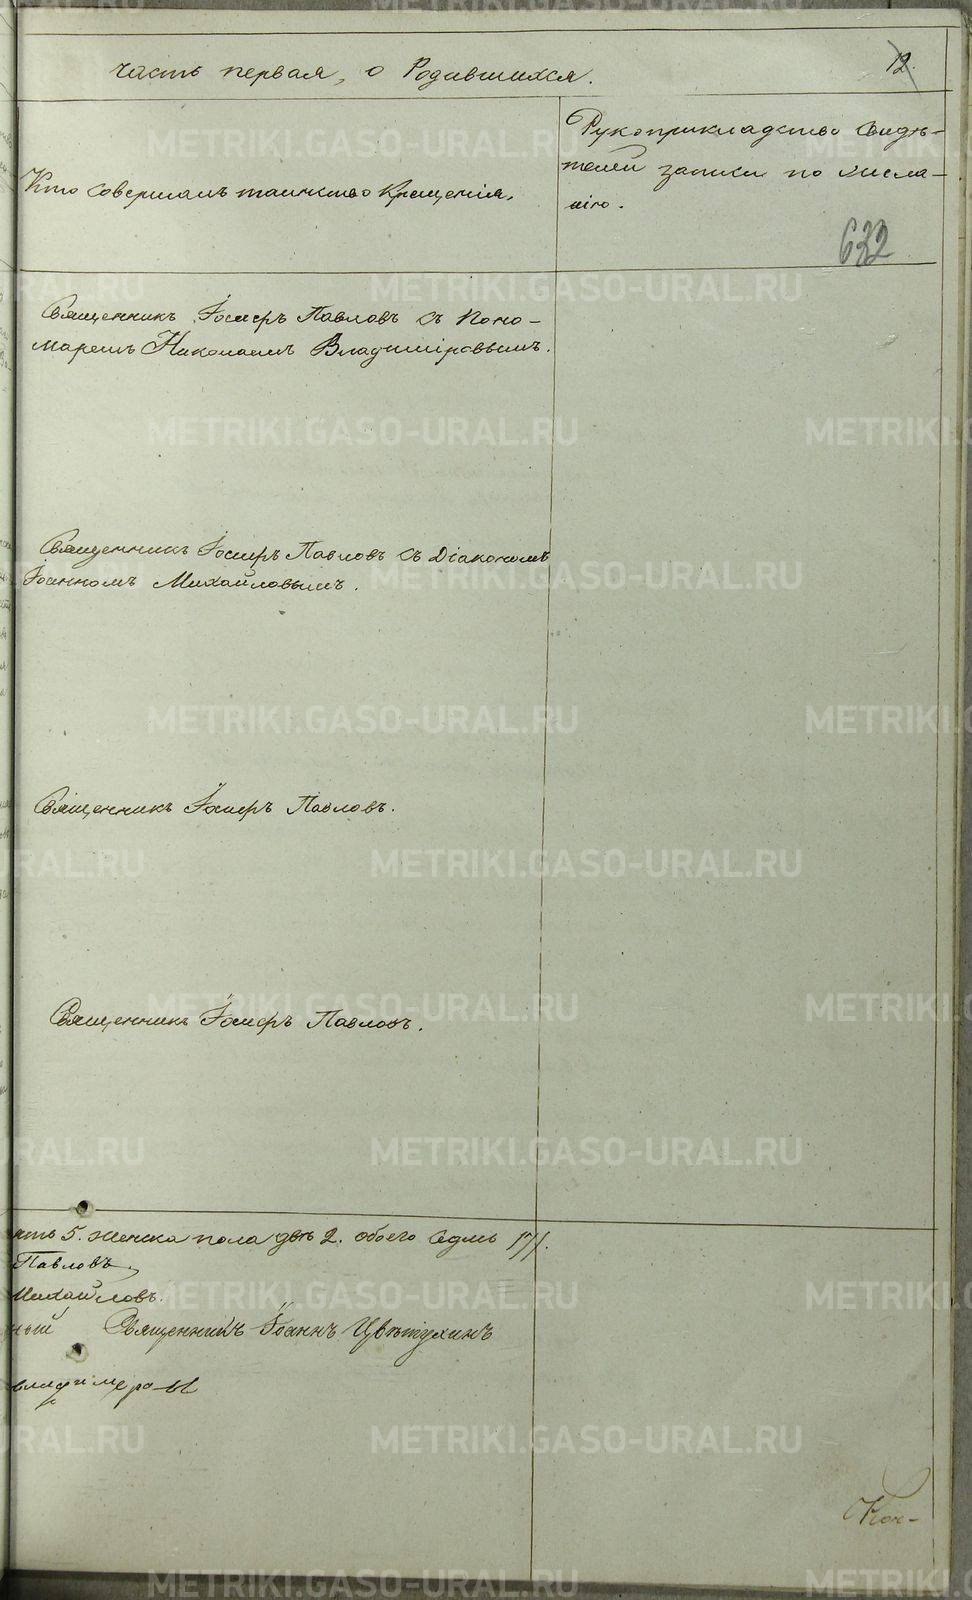 часть первая, о Родившихся.
12.
Кто совершалъ таинство крещенія.
Рукоприкладство свидѣ-
телей записки по жела-
нію.
632
Священникъ Іосифъ Павловъ съ Поно-
маремъ Николаемъ Владиміровымъ.
Священникъ Іосифъ Павловъ съ Діакономъ
Іоанномъ Михайловымъ.
Священникъ Іосифъ Павловъ.
Священникъ Іосифъ Павловъ.
ять 5. женска пола двѣ 2. обоего седмь /7/.
Павловъ,
Михайловъ.
ный Священникъ Іоаннъ Цвѣтухинъ
METRIKI.GASO-URAL.RU